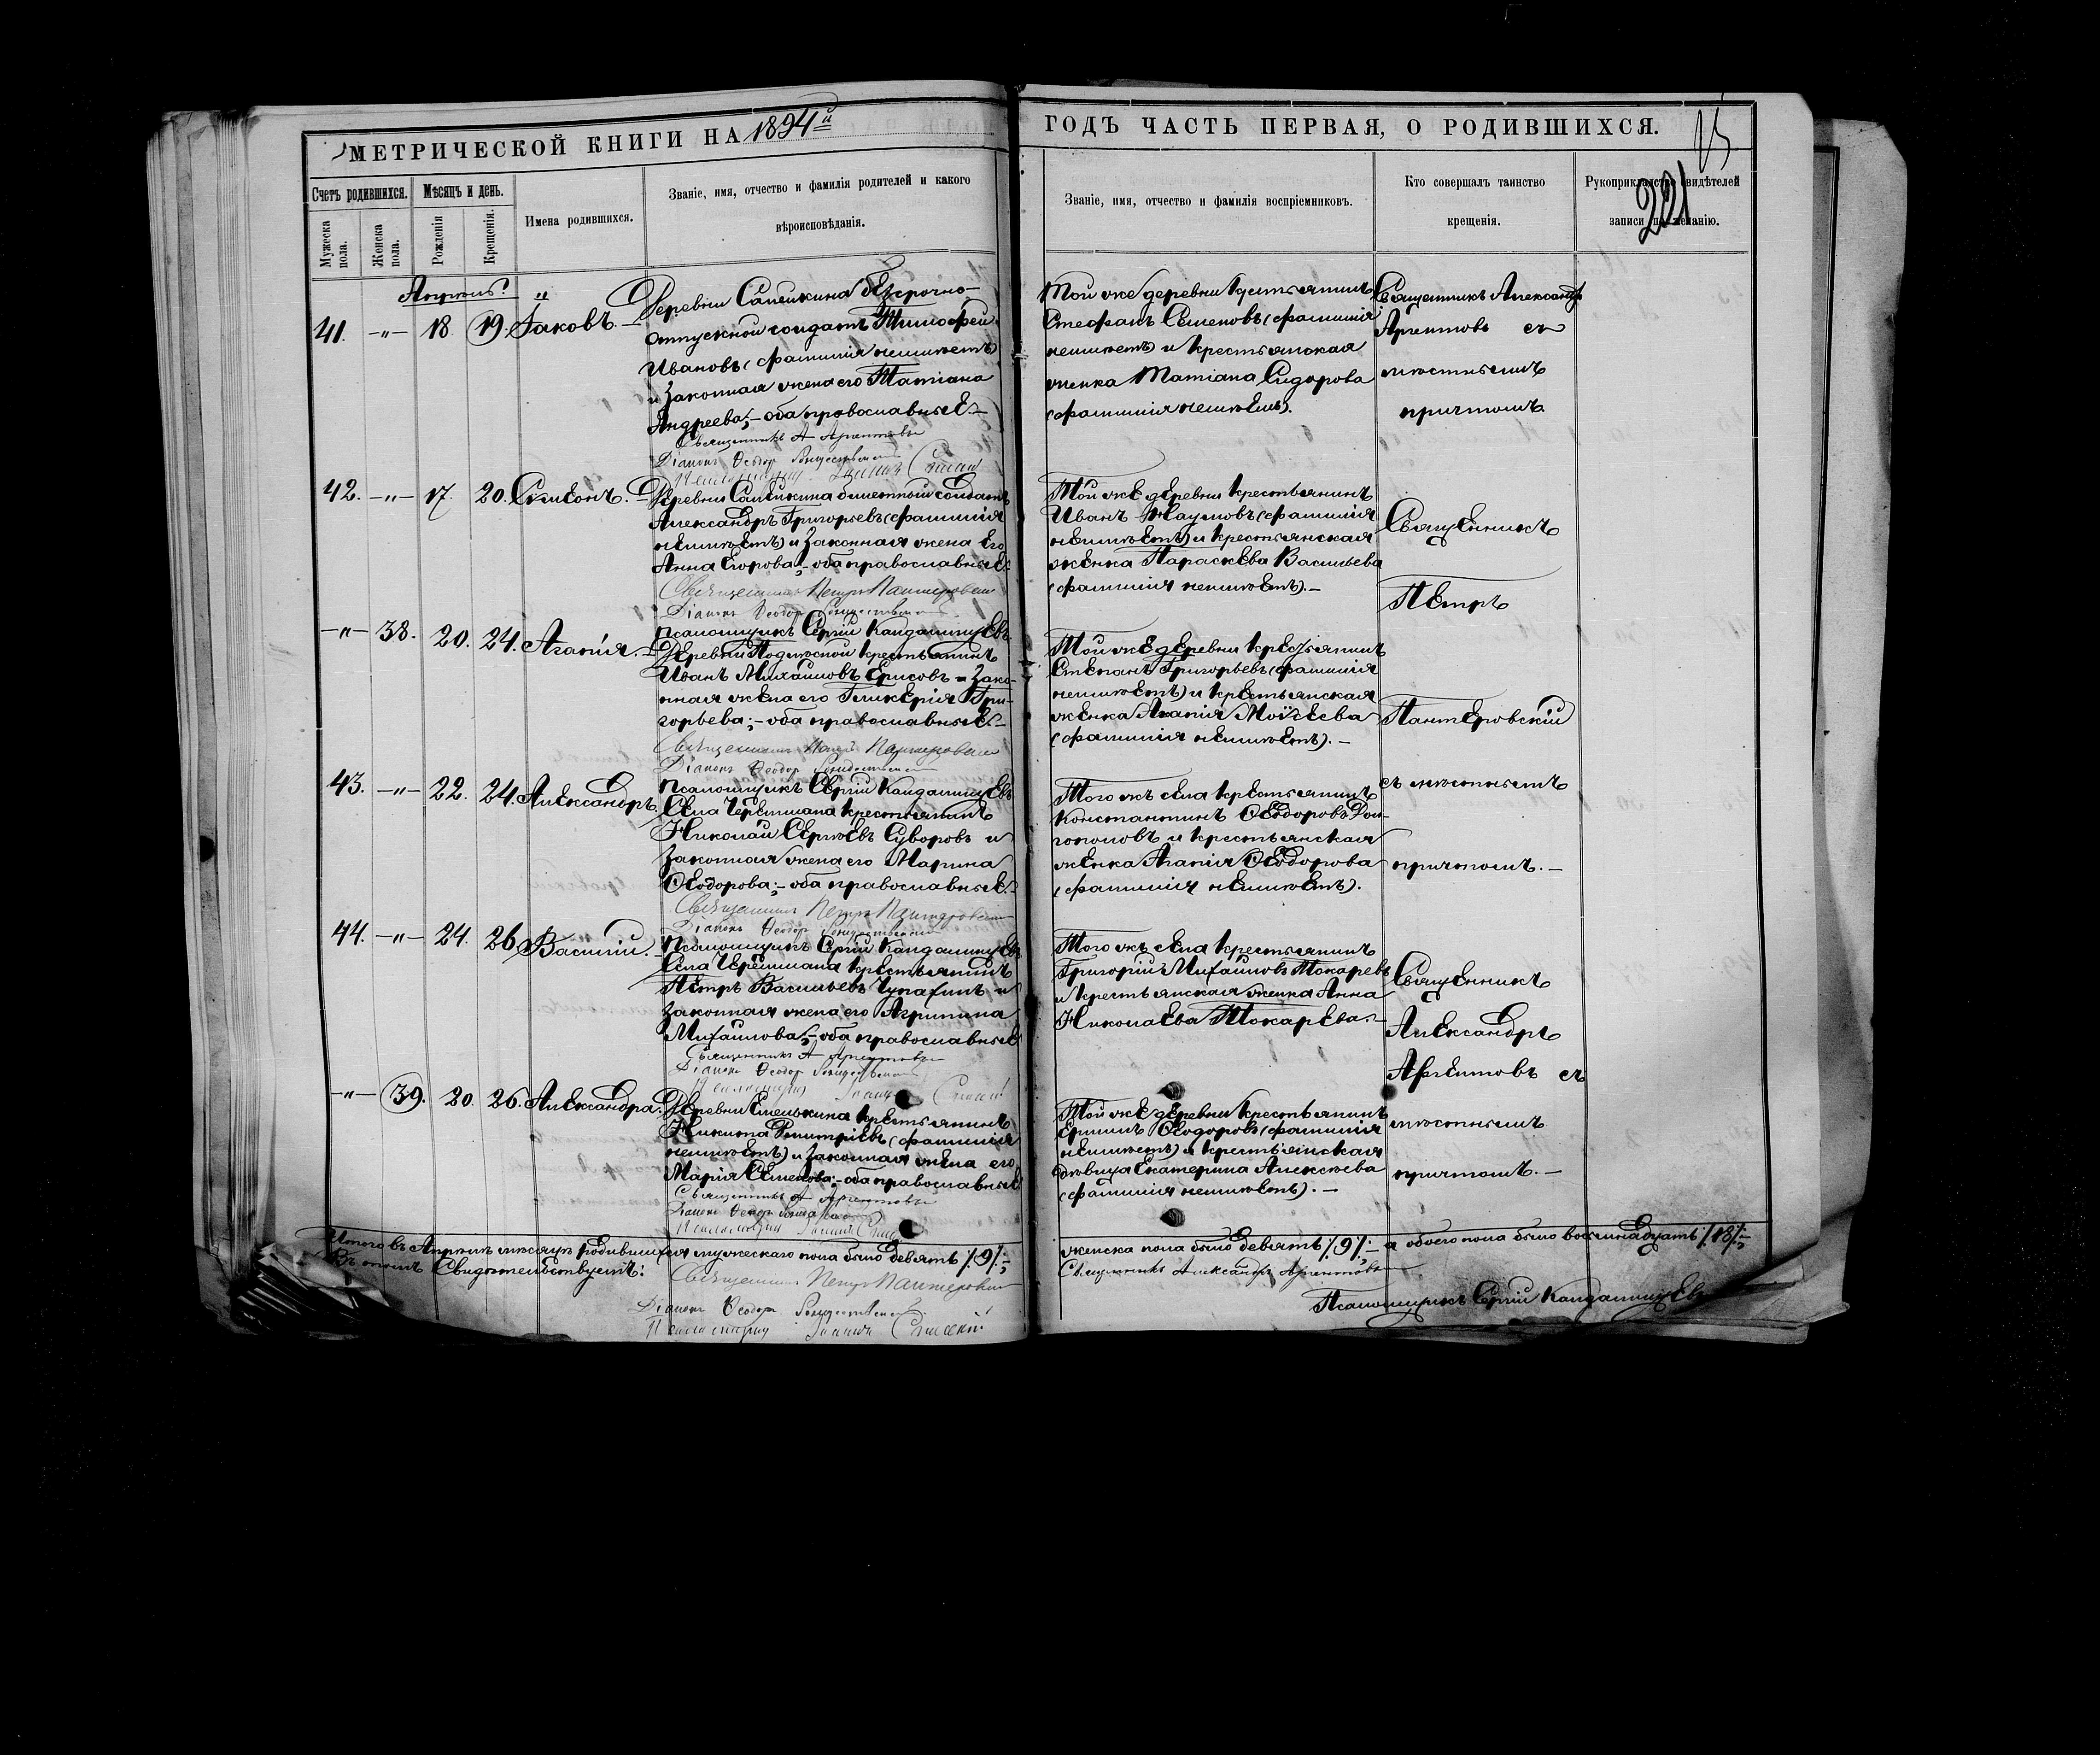 МЕТРИЧЕСКОЙ КНИГИ НА 1894й
ГОДЪ ЧАСТЬ ПЕРВАЯ, О РОДИВШИХСЯ.
221
Счетъ родившихся.
Мѣсяцъ и день.
Мужеска пола.
Женска пола.
Рожденія
Крещенія.
Имена родившихся.
Званіе, имя, отчество и фамилія родителей и какого
вѣроисповѣданія.
Званіе, имя, отчество и фамилія воспріемниковъ.
Кто совершалъ таинство
крещенія.
Рукоприкладство свидѣтелей
записи по желанію.
Апрѣль
41. -"- 18. 19. Іаковъ.
Деревни Сапейкина безсрочно-
отпускной солдатъ Тимоѳей
Ивановъ (фамиліи неимѣетъ)
и законная жена его Татіана
Андреева; - оба православные. -
Священникъ А Аргентовъ
Діаконъ Ѳеодор Рождественскій
Той же деревни крестьянинъ
Стефанъ Семеновъ (фамиліи
неимѣетъ) и крестьянская
женка Татіана Сидорова
(фамиліи неимѣетъ).
Священникъ Александръ
Аргентовъ съ
мѣстнымъ
причтомъ.
42. -"- 17. 20. Симеонъ. -
Деревни Сапейкина билетный солдатъ
Александръ Григорьевъ (фамиліи
неимѣетъ) и законная жена его
Анна Егорова; - оба православные. -
Священникъ Петръ Пантеровскій
Діаконъ Ѳеодор Рождественскій
Псаломщикъ Сергій Кандалинцевъ
Той же деревни крестьянинъ
Иванъ Наумовъ (фамиліи
неимѣетъ) и крестьянская
женка Параскева Васильева
(фамиліи неимѣетъ). -
Священникъ
Петръ
-"- 38. 20. 24. Агапія. -
Деревни Подлѣсной крестьянинъ
Иванъ Михайловъ Ерисовъ и зако-
нная жена его Гликерія Гри-
горьева; - оба православные. -
Священникъ Петръ Пантеровскій
Діаконъ Ѳеодор Рождественскій
Псаломщикъ Сергій Кандалинцевъ
Той же деревни крестьянинъ
Степанъ Григорьевъ (фамиліи
неимѣетъ) и крестьянская
женка Агапія Моѵсеева
(фамиліи неимѣетъ). -
Пантеровскій
43. -"- 22. 24. Александръ.
Села Черемшана крестьянинъ
Николай Сергѣевъ Суворовъ и
законная жена его Марина
Ѳеодорова; - оба православные. -
Священникъ Петръ Пантеровскій
Діаконъ Ѳеодор Рождественскій
Псаломщикъ Сергій Кандалинцевъ
Того жъ села крестьянинъ
Константинъ Ѳеодоровъ Дол-
гополовъ и крестьянская
женка Агапія Ѳеодорова
(фамиліи неимѣетъ).
съ мѣстнымъ
причтомъ. -
44. -"- 24. 26. Василій. -
Села Черемшана крестьянинъ
Петръ Васильевъ Чупахинъ и
законная жена его Агрипина
Михайлова; - оба православные
Священникъ А Аргентовъ
Діаконъ Ѳеодор Рождественскій
Того жъ села крестьянинъ
Григорій Михайловъ Токаревъ
и крестьянская женка Анна
Николаева Токарева. -
Священникъ
Александръ
Аргентовъ съ
-"- 39. 20. 26. Александра.
Деревни Емелькина крестьянинъ
Никита Димитріевъ (фамиліи
неимѣетъ) и законная жена его
Марія Семенова; - оба православные
Священникъ А Аргентовъ
Той же деревни крестьянинъ
Ермилъ Ѳеодоровъ (фамиліи
неимѣетъ) и крестьянская
дѣвица Екатерина Алексѣева
(фамиліи неимѣетъ). -
мѣстнымъ
причтомъ. -
Итого въ Апрѣлѣ мѣсяцѣ родившихся мужескаго пола было девять /9/; -
женска пола было девять /9/; - а обоего пола было восемнадцать /18/; -
Въ томъ Свидѣтельствуемъ:
Священникъ Петръ Пантеровскій
Священникъ Александръ Аргентовъ
Діаконъ Ѳеодоръ Рождественскій
Псаломщикъ Сергій Кандалинцевъ